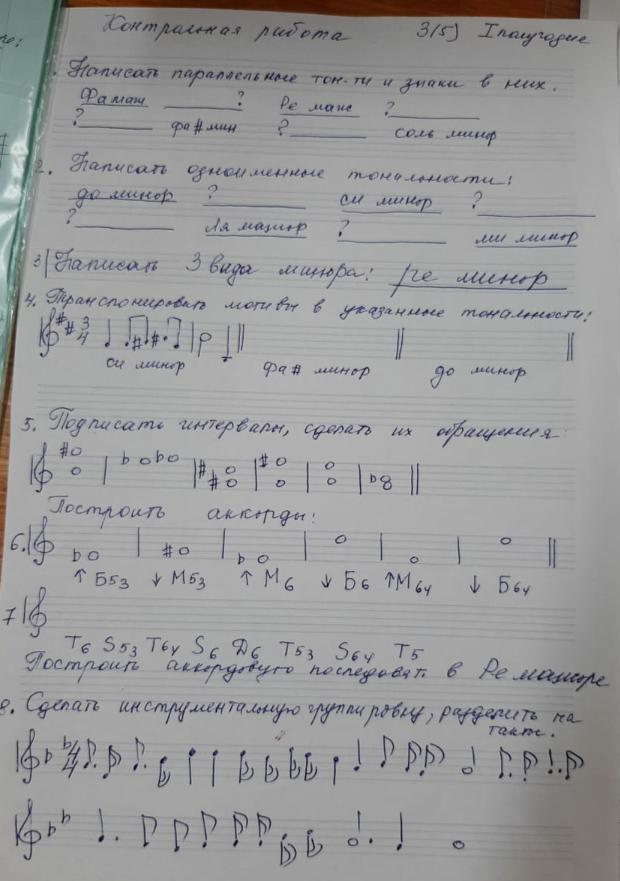 Контрольная работа 3(5) I полугодие
. Написать параллельные тон-ти и знаки в них.
Фа маж ______? Ре маж ?______
?______ фа# мин ?______ соль минор
2. Написать одноименные тональности:
до минор ?______ си минор ?______
?______ Ля мажор ?______ ми минор
3 Написать 3 вида минора: ре минор
4. Транспонировать мотивы в указанные тональности:
3
4
си минор фа# минор до минор
5. Подписать интервалы, сделать их обращения:
Построить аккорды:
6.
↑ Б53 ↓ М53 ↑ М6 ↓ Б6 ↑М64 ↓ Б64
7
Т6 S53 Т64 S6 Д6 Т53 S64 Т5
Построить аккордовую последоват. в Ре мажоре
8. Сделать инструментальную группировку, разделить на
такты.
4
4